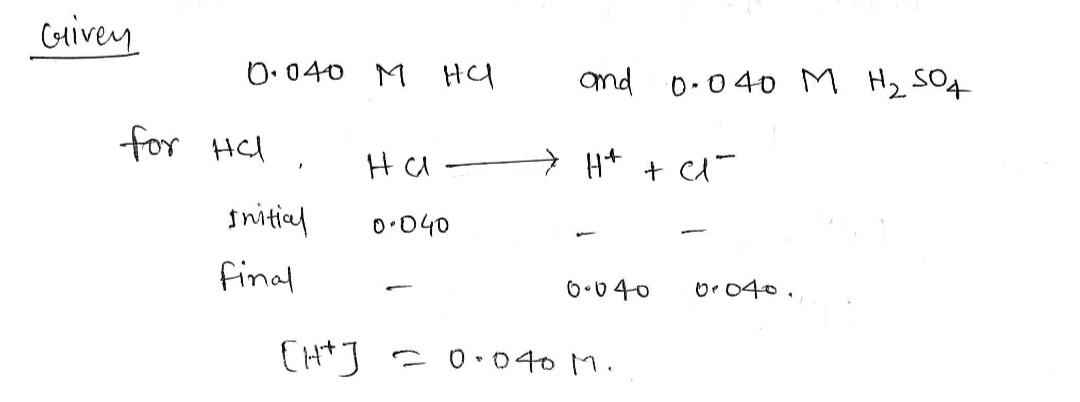 Given
0.040 M HCl and 0.040 M H₂SO₄
for HCl, HCl ⟶ H⁺ + Cl⁻
Initial 0.040 – –
final – 0.040 0.040.
[H⁺] = 0.040 M.